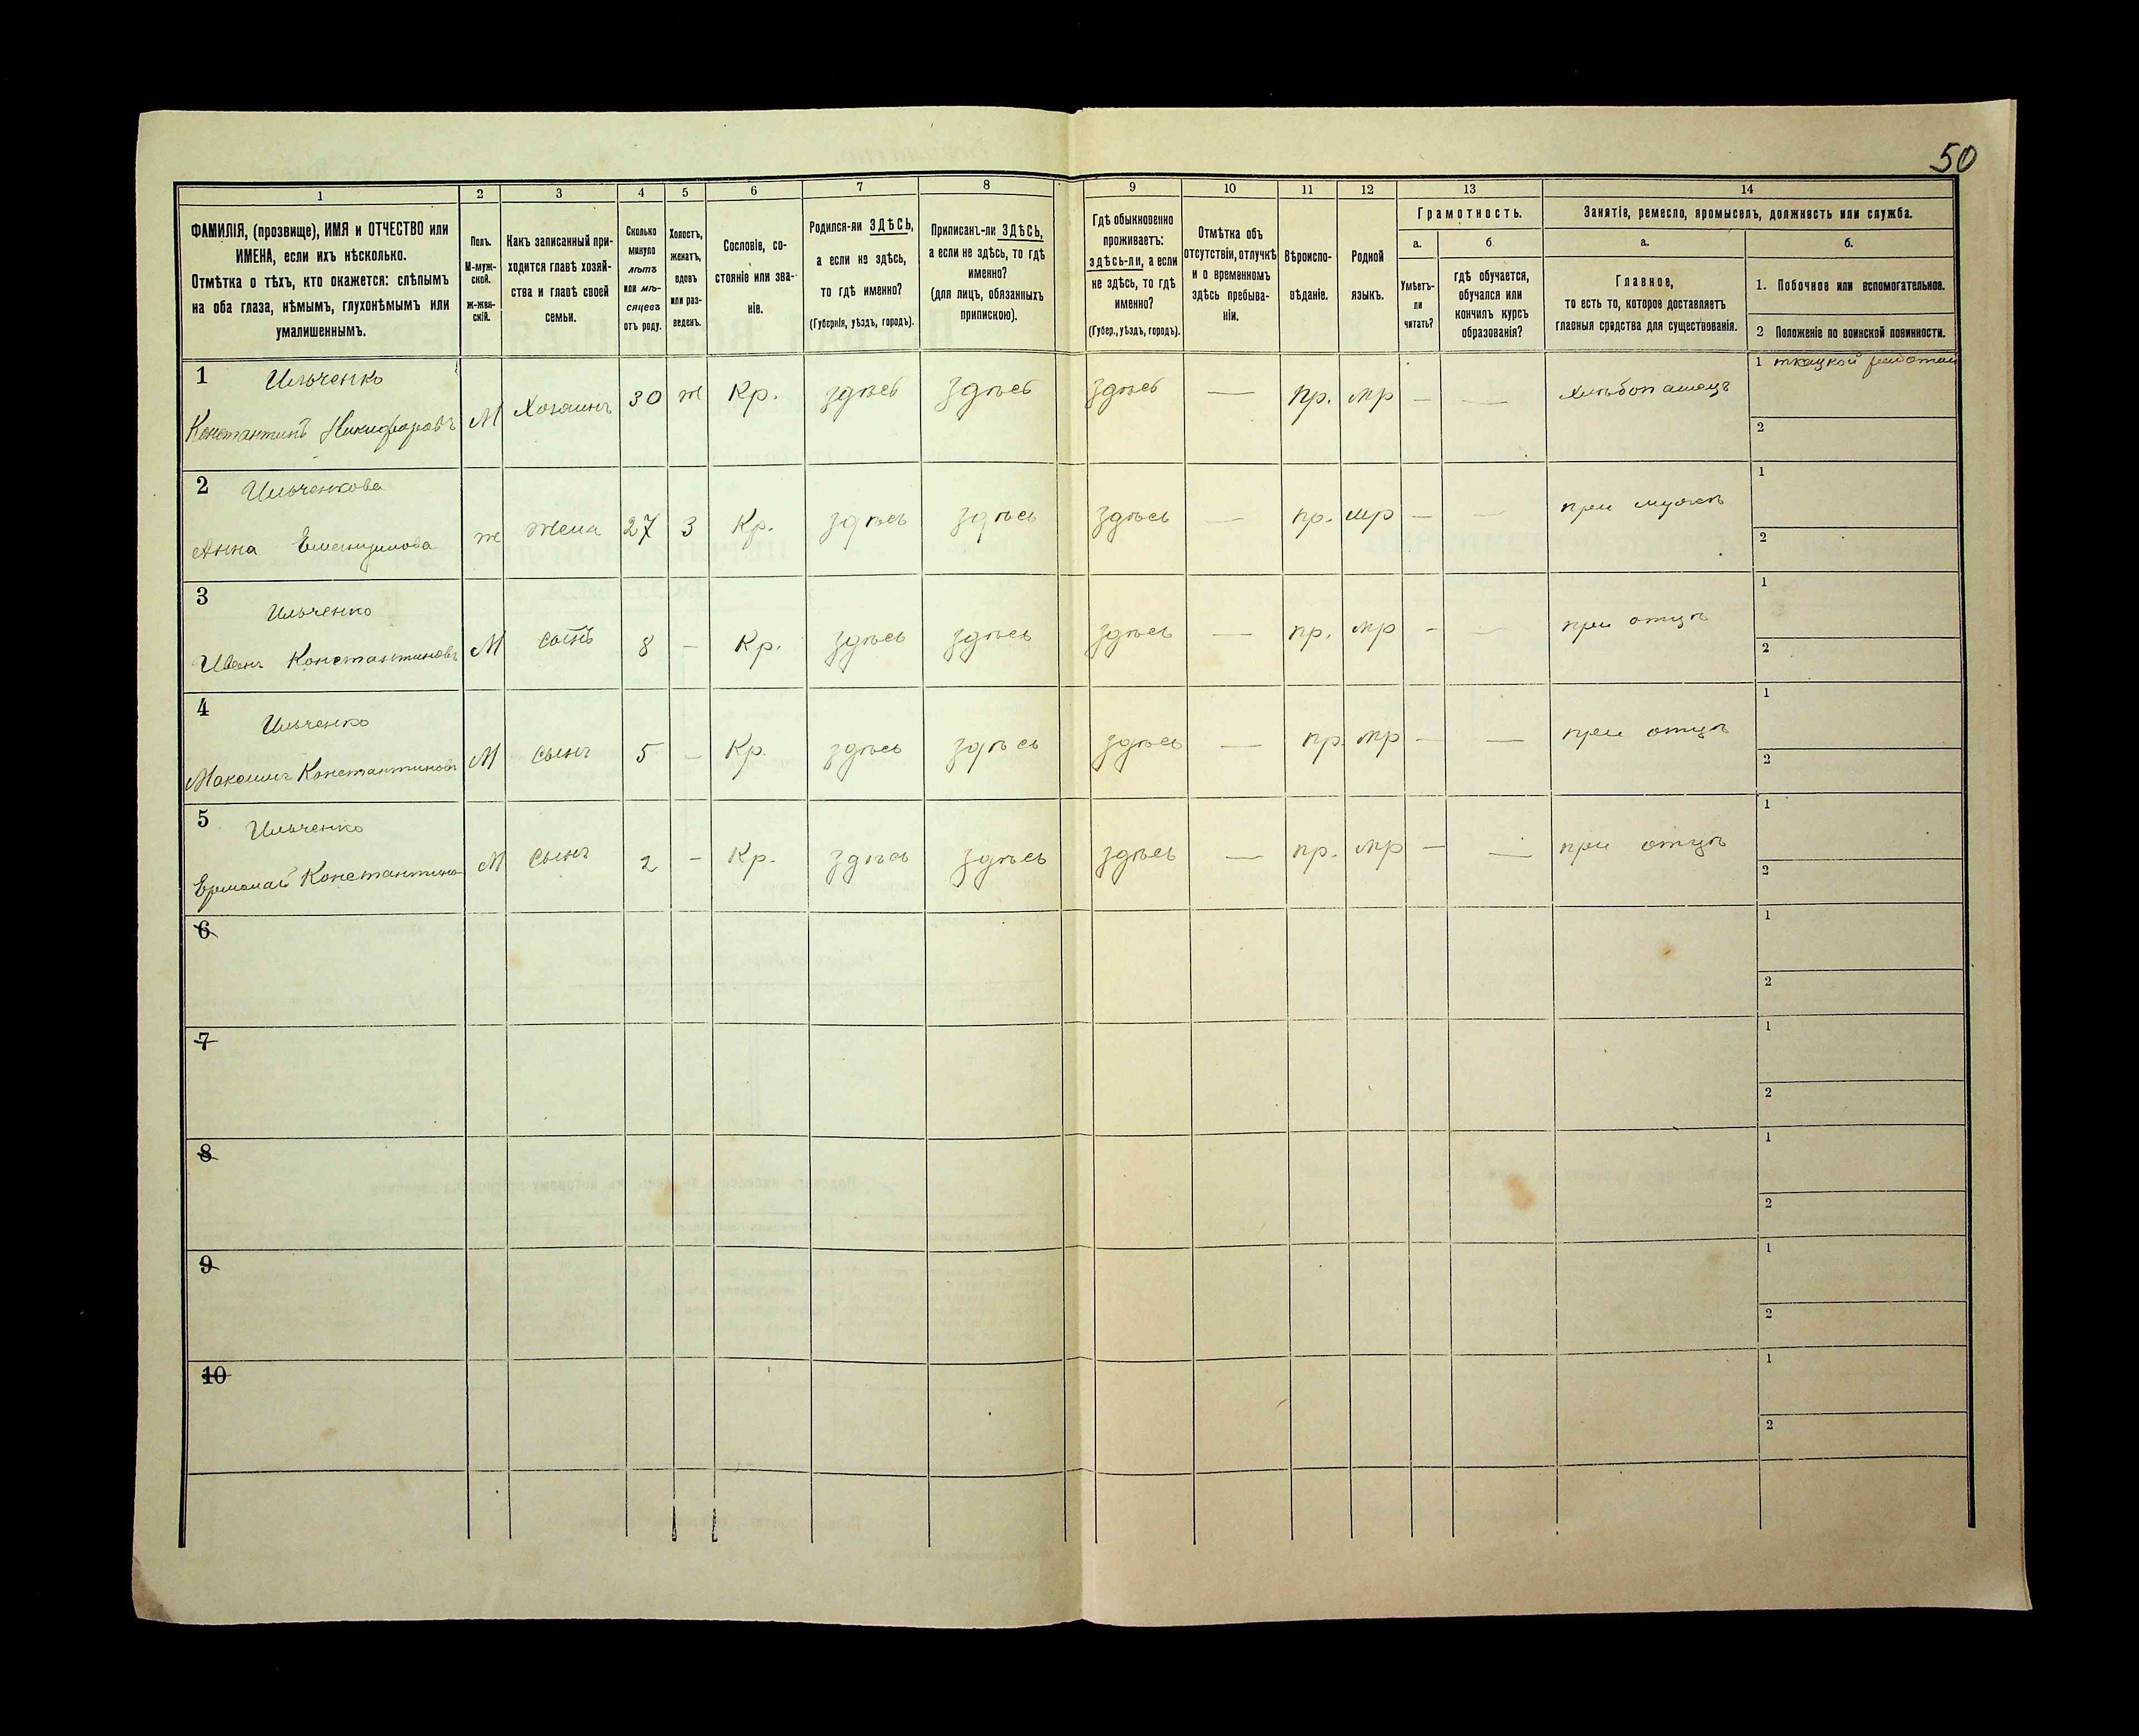 50
1 2 3 4 5 6 7 8 9 10 11 12 13 14
ФАМИЛІЯ, (прозвище), ИМЯ и ОТЧЕСТВО или
ИМЕНА, если ихъ нѣсколько.
Отмѣтка о тѣхъ, кто окажется: слѣпымъ
на оба глаза, нѣмымъ, глухонѣмымъ или
умалишеннымъ.
Полъ.
М-муж-
ской.
ж-жен-
скій.
Какъ записанный при-
ходится главѣ хозяй-
ства и главѣ своей
семьи.
Сколько
минуло
лѣтъ
или мѣ-
сяцевъ
отъ роду.
Холостъ,
женатъ,
вдовъ
или раз-
веденъ.
Сословіе, со-
стояніе или зва-
ніе.
Родился-ли ЗДѢСЬ,
а если не здѣсь,
то гдѣ именно?
(Губернія, уѣздъ, городъ).
Приписанъ-ли ЗДѢСЬ,
а если не здѣсь, то гдѣ
именно?
(для лицъ, обязанныхъ
припискою).
Гдѣ обыкновенно
проживаетъ:
здѣсь-ли, а если
не здѣсь, то гдѣ
именно?
(Губер., уѣздъ, городъ).
Отмѣтка объ
отсутствіи, отлучкѣ
и о временномъ
здѣсь пребыва-
ніи.
Вѣроиспо-
вѣданіе.
Родной
языкъ.
Грамотность.
а. б.
Умѣетъ-
ли
читать?
гдѣ обучается,
обучался или
кончилъ курсъ
образованія?
Занятіе, ремесло, промыселъ, должность или служба.
а. б.
Главное,
то есть то, которое доставляетъ
главныя средства для существованія.
1. Побочное или вспомогательное.
2 Положеніе по воинской повинности.
1 Ильченко
Константинъ Никифоровъ М Хозяинъ 30 ж Кр. здѣсь здѣсь здѣсь — пр. мр — — Хлѣбопашецъ
1 ткацкой работой
2
2 Ильченкова
Анна ж Жена 27 З Кр. здѣсь здѣсь здѣсь — пр. мр — — при мужѣ
1
2
3 Ильченко
Иванъ Константиновъ М сынъ 8 — Кр. здѣсь здѣсь здѣсь — пр. мр — — при отцѣ
1
2
4 Ильченко
Максимъ Константиновъ М сынъ 5 — Кр. здѣсь здѣсь здѣсь — пр. мр — — при отцѣ
1
2
5 Ильченко
Ермолай Константинов М сынъ 2 — Кр. здѣсь здѣсь здѣсь — пр. мр — — при отцѣ
1
2
6
1
2
7
1
2
8
1
2
9
1
2
10
1
2